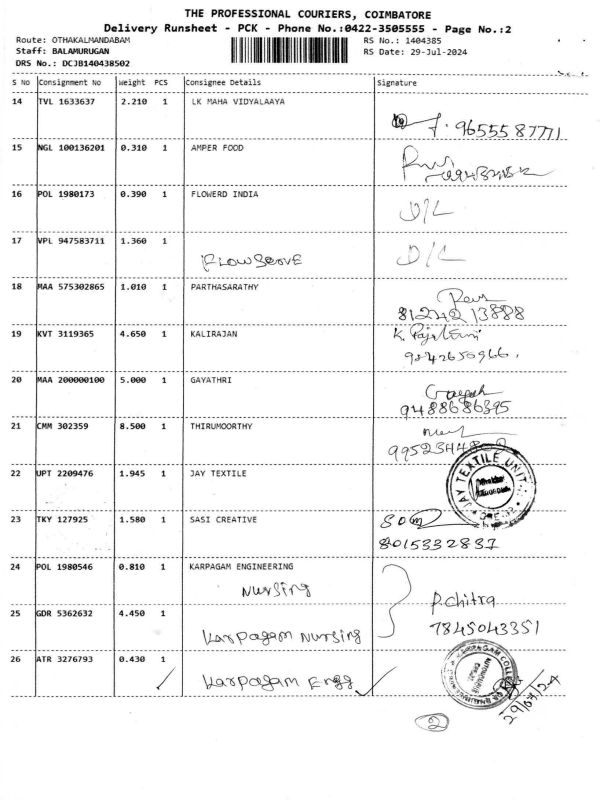 THE PROFESSIONAL COURIERS, COIMBATORE
Delivery Runsheet - PCK - Phone No.:0422-3505555 - Page No.:2
Route: OTHAKALMANDABAM
RS No.: 1404385
Staff: BALAMURUGAN
RS Date: 29-Jul-2024
DRS No.: DCJB140438502
S No Consignment No Weight PCS Consignee Details Signature
14 TVL 1633637 2.210 1 LK MAHA VIDYALAAYA
9655587771
15 NGL 100136201 0.310 1 AMPER FOOD
16 POL 1980173 0.390 1 FLOWERD INDIA
D/L
17 VPL 947583711 1.360 1
Flowserve D/L
18 MAA 575302865 1.010 1 PARTHASARATHY
81242 13888
19 KVT 3119365 4.650 1 KALIRAJAN
9842650966.
20 MAA 200000100 5.000 1 GAYATHRI
9488686395
21 CMM 302359 8.500 1 THIRUMOORTHY
22 UPT 2209476 1.945 1 JAY TEXTILE
JAY TEXTILE UNIT
23 TKY 127925 1.580 1 SASI CREATIVE
8015332837
24 POL 1980546 0.810 1 KARPAGAM ENGINEERING
Nursing
P.Chitra
25 GDR 5362632 4.450 1
Karpagam Nursing 7845043351
26 ATR 3276793 0.430 1
Karpagam Engg
29/07/24
2